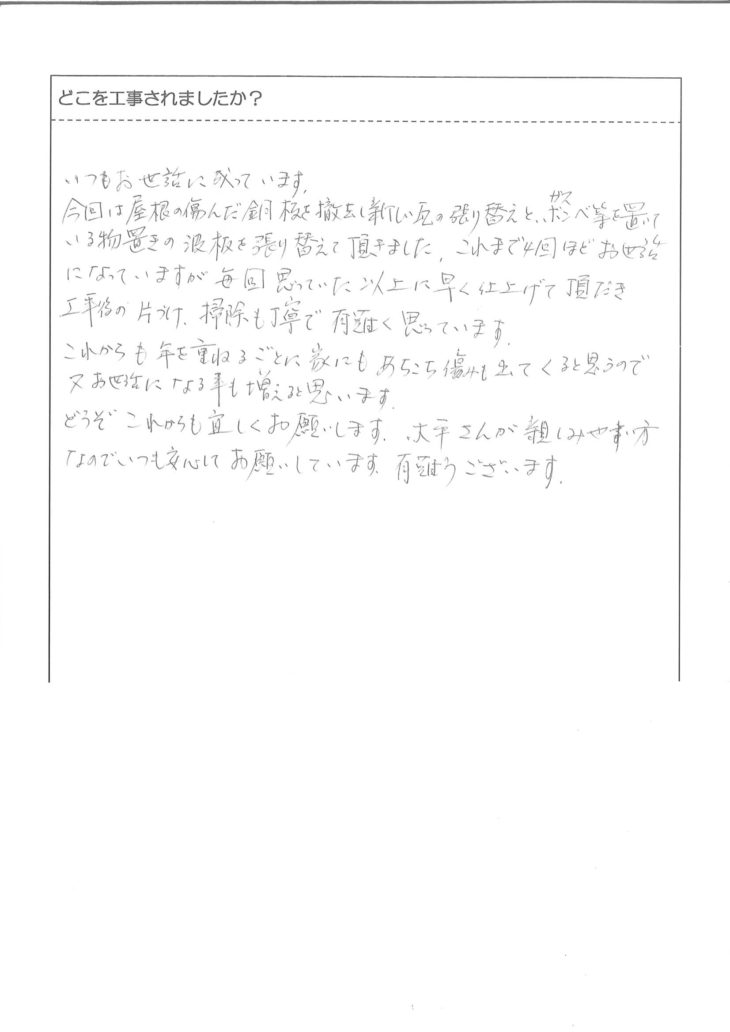 どこを工事されましたか？
いつもお世話に成っています。
今回は屋根の傷んだ銅板を撤去し新しい瓦の張り替えと、ガスボンベ等を置いて
いる物置きの波板を張り替えて頂きました。これまで4回ほどお世話
になっていますが毎回思っていた以上に早く仕上げて頂だき
工事後の片づけ、掃除も丁寧で有難く思っています。
これからも年を重ねるごとに家にもあちこち傷みも出てくると思うので
又お世話になる事も増えると思います。
どうぞこれからも宜しくお願いします。大平さんが親しみやすい方
なのでいつも安心してお願いしています。有難うございます。